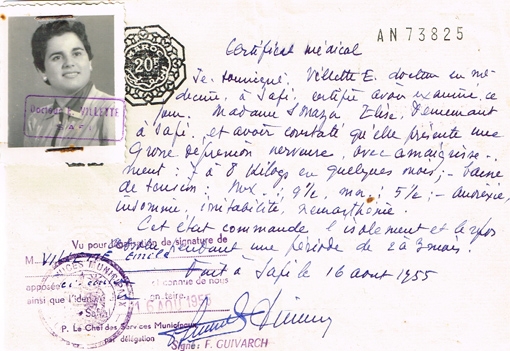 AN 73825
MAROC
20F
Docteur VILLETTE
SAFI
Certificat médical
Je soussigné, Villette E. docteur en mé-
decine, à Safi, certifie avoir examiné ce
jour Madame Elise, Demeurant
à Safi, et avoir constaté qu'elle présente une
Grosse dépression nerveuse, avec amaigrisse-
ment : 7 à 8 Kilogs en quelques mois ; Baisse
de tension : Mx : 9½, mn : 5½ - Anorexie,
insomnie, irritabilité,
Cet état commande l'isolement et le repos
pendant une période de 2 à 3 mois.
Fait à Safi le 16 août 1955
Vu pour de signature de
M. VILLETTE Emile
apposée et connue de nous
ainsi que l'identité
16 AOU 1955
SERVICES MUNICIPAUX
P. Le Chef des Services Municipaux
par délégation
Signé: F. GUIVARCH